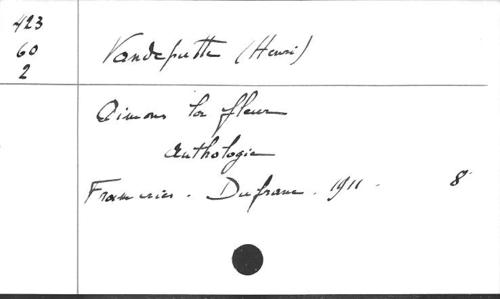 423
60
2
Vandeputte (Henri)
Aimons la fleur
Anthologie
Frameries. Dufrane. 1911. 8°